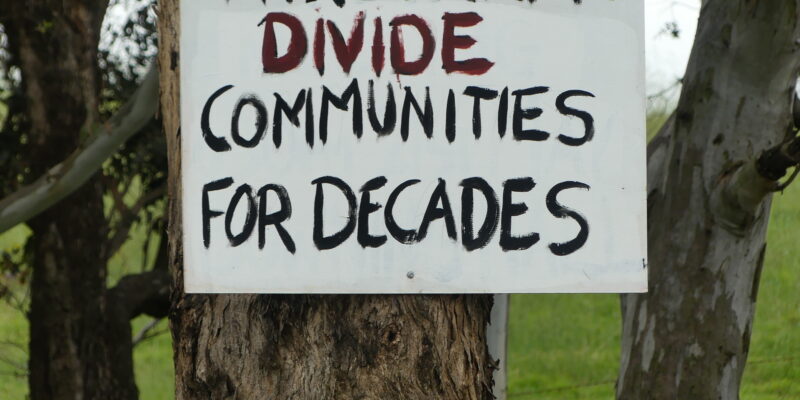 DIVIDE
COMMUNITIES
FOR DECADES